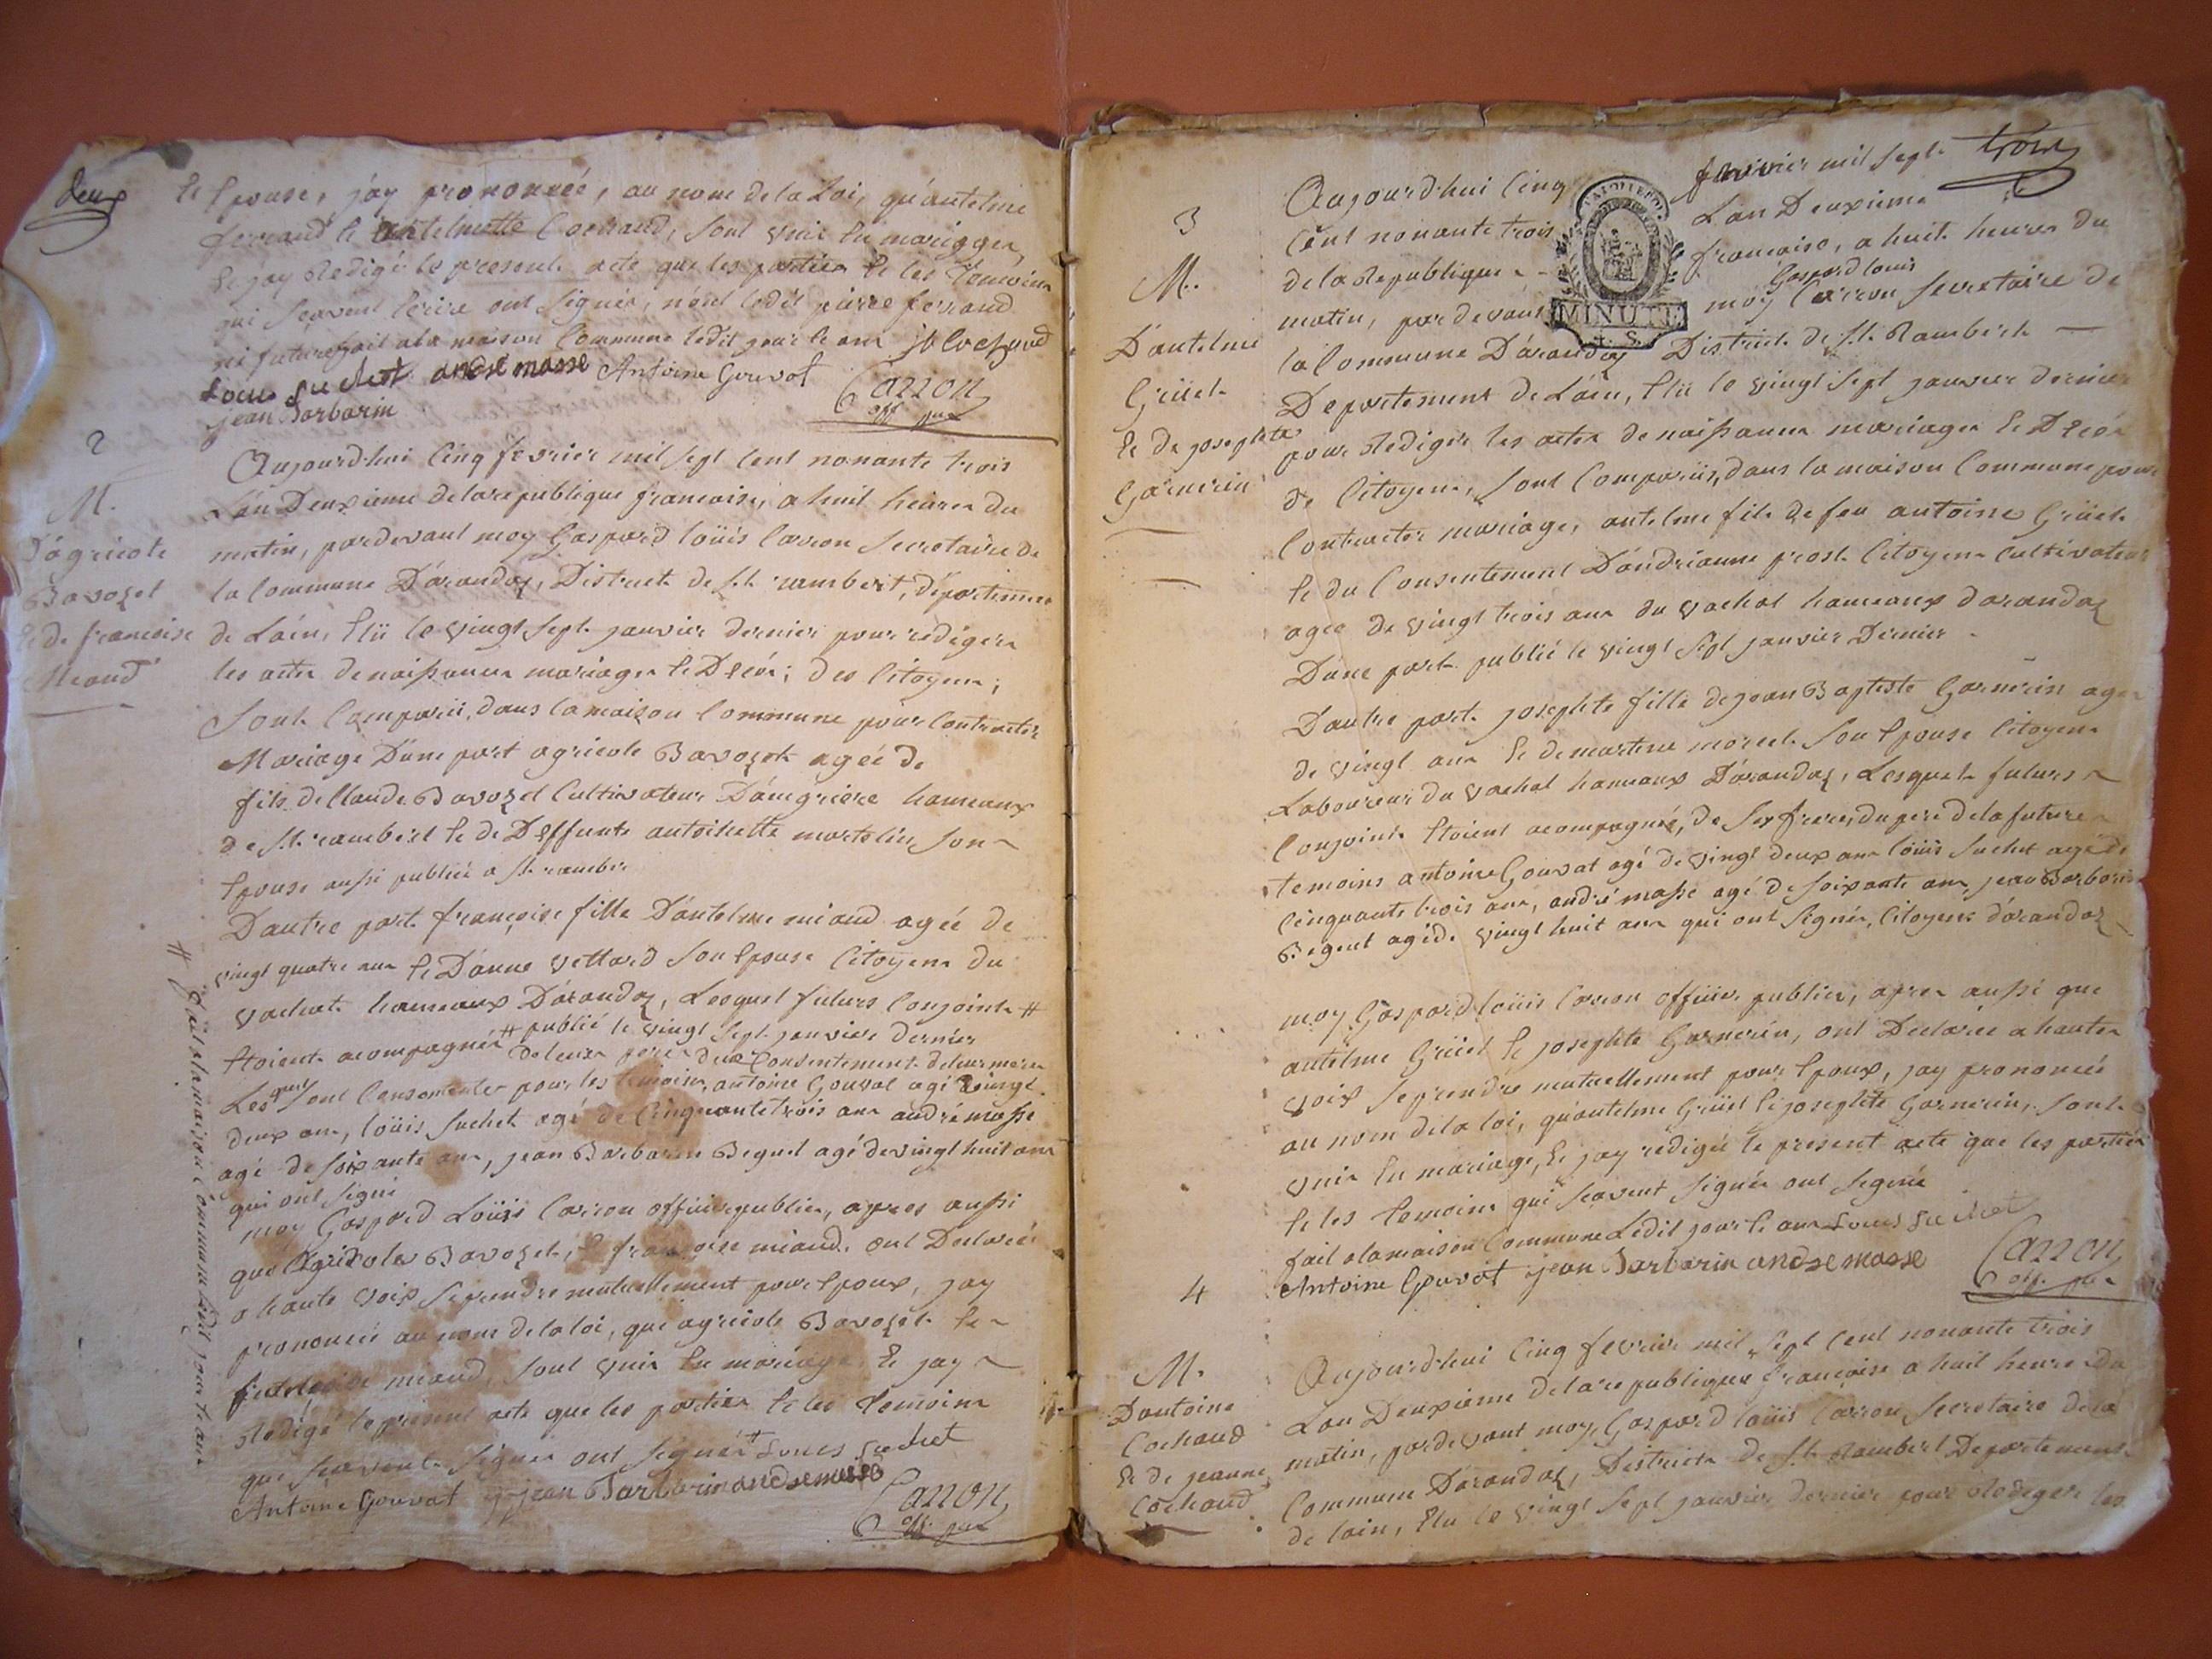 deux
et Epouse, j'ay prononcéé, au nom de la Loi, qu'antelme
ferraud et antelmette Cochaud, sont unir En mariggea
Et jay Redigé le present acte que les partiea Et les Témoina
qui Scavent Ecrire ont Signéa, n'ont ledit pierre ferraud
ni future fait a la maison Commune ledit jour Et an jb Cochaud
Louis Suchet andré masse Antoine Gouvat
jean Barbarin Carron
off. pu
2
M.
D'agricole
Bavozet
Et de francoise
Miaud
Aujourd'hui Cinq fevrier mil sept Cent nonante trois
L'an Deuxieme de la republique francaise, a huit heurea du
matin, pardevant moy Gaspard loüis Carron Secretaire de
la Commune D'arandaz, District de St. rambert, département
de Lain, Elü le vingt sept janvier dernier pour rédigéra
les actea de naissancea mariagea Et Décéa, des Citoyena,
Sont Comparü, dans la maison Commune pour Contracter
Mariage D'une part agricole Bavozet agéé de
fils de Claude Bavozet Cultivateur D'aingriere hameaux
de St. rambert Et de Deffunte antoinette martelin, son
Epouse aussi publiéé a St. rambér
D'autre part françoise fille D'antelme miaud agéé de
vingt quatre ana Et D'anne vettard Son Epouse Citoyena du
vachat hameaux D'arandaz, Lesquel futurs Conjoints #
# publié le vingt sept janvier dernier
Etoient acompagnéa de leura perea du Consentement de leurs merea
Lesquel ont Consenti pour les temoins, antoine Gouvat agé de vingt
deux ana, loüis Suchet agé de Cinquante trois ana andré masse
agé de soixante ana, jean Barbarin Beguet agé de vingt huit ana
qui ont signé
moy Gaspard Loüis Carron officier publica, apres aussi
que agricole Bavozet, Et françoise miaud, ont Declaréé
a haute voix se prendre mutuellement pour Epoux, jay
prononcéé au nom de la loi, que agricole Bavozet Et
francoise miaud, sont unir En mariage, Et jay
Redigé le présent acte que les partiea Et les Temoina
que Scavent Signer ont Signéa # Louis Suchet
Antoine Gouvat jean Barbarin andre masse
Carron
off. pu
# fait a la maison Commune ledit jour Et an
trois
3
M.
D'antelme
Grüet
Et de josephte
Garnerin
MINUTE
Aujourd'hui Cinq fevrier mil sept
Cent nonante trois L'an Deuxieme
de la Republique francaise, a huit heurea du
Gaspard louis
matin, pardevant moy Carron Secretaire de
la Commune D'arandaz District de St. Rambert
Departement de Lain, Elü le vingt sept janvier dernier
pour Rediger les actea de naissancea mariagea Et Décéa
de Citoyena, sont Comparüs, dans la maison Commune pour
Contracter mariage, antelme fils de feu antoine Grüet
Et du Consentement D'andrianne prost Citoyena Cultivateur
agéé de vingt trois ana du vachat hameaux d'arandaz
D'une part publié le vingt sept janvier Dernier
D'autre part josephte fille de jean Baptiste Garnerin agéa
de vingt ana Et de martine morcel Son Epouse Citoyena
Laboureur du vachat hameaux D'arandaz, Lesquels futurs
Conjoint Etoient acompagné, de ses frere, du pere de la future
temoins antoine Gouvat agé de vingt deux ana loüis Suchet agé de
Cinquante trois ana, andré masse agé de soixante ana, jean Barbarin
Beguet agé de vingt huit ana qui ont Signéa, Citoyena d'arandaz
moy Gaspard loüis Carron officier publica, aprea aussi que
antelme Grüet Et josephte Garnerin, ont Declaréé a hautea
voix se prendre mutuellement pour Epoux, jay prononcéé
au nom de la loi, qu'antelme Grüet Et josephte Garnerin, sont
unir En mariage, Et jay rédigéé le present acte que les partiea
Et les temoins qui Scavent Signéa ont Signéa
fait a la maison Commune Ledit jour Et ana Louis Suchet
Antoine Gouvat jean Barbarin andre masse Carron
off. pu
4
M.
D'antoine
Cochaud
Et de jeanne
Cochaud
Aujourd'hui Cinq fevrier mil sept Cent nonante trois
Lan Deuxieme de la republique françoise a huit heurea Du
matin, pardevant moy Gaspard loüis Carron Secretaire de la
Commune D'arandaz, District de St. Rambert Departement
de lain, Elu le vingt sept janvier dernier pour Rediger les